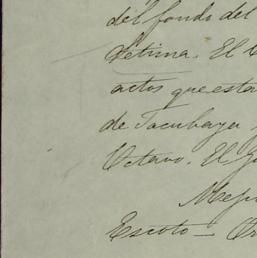 del fondo del
Setima. El
actos que esta
de Tacubaya
Octavo. El
Mej
Escoto –